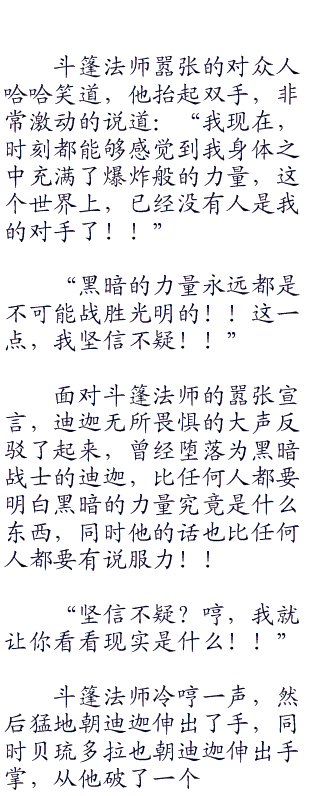 斗篷法师嚣张的对众人
哈哈笑道，他抬起双手，非
常激动的说道：“我现在，
时刻都能够感觉到我身体之
中充满了爆炸般的力量，这
个世界上，已经没有人是我
的对手了！！”
“黑暗的力量永远都是
不可能战胜光明的！！这一
点，我坚信不疑！！”
面对斗篷法师的嚣张宣
言，迪迦无所畏惧的大声反
驳了起来，曾经堕落为黑暗
战士的迪迦，比任何人都要
明白黑暗的力量究竟是什么
东西，同时他的话也比任何
人都要有说服力！！
“坚信不疑？哼，我就
让你看看现实是什么！！”
斗篷法师冷哼一声，然
后猛地朝迪迦伸出了手，同
时贝琉多拉也朝迪迦伸出手
掌，从他破了一个